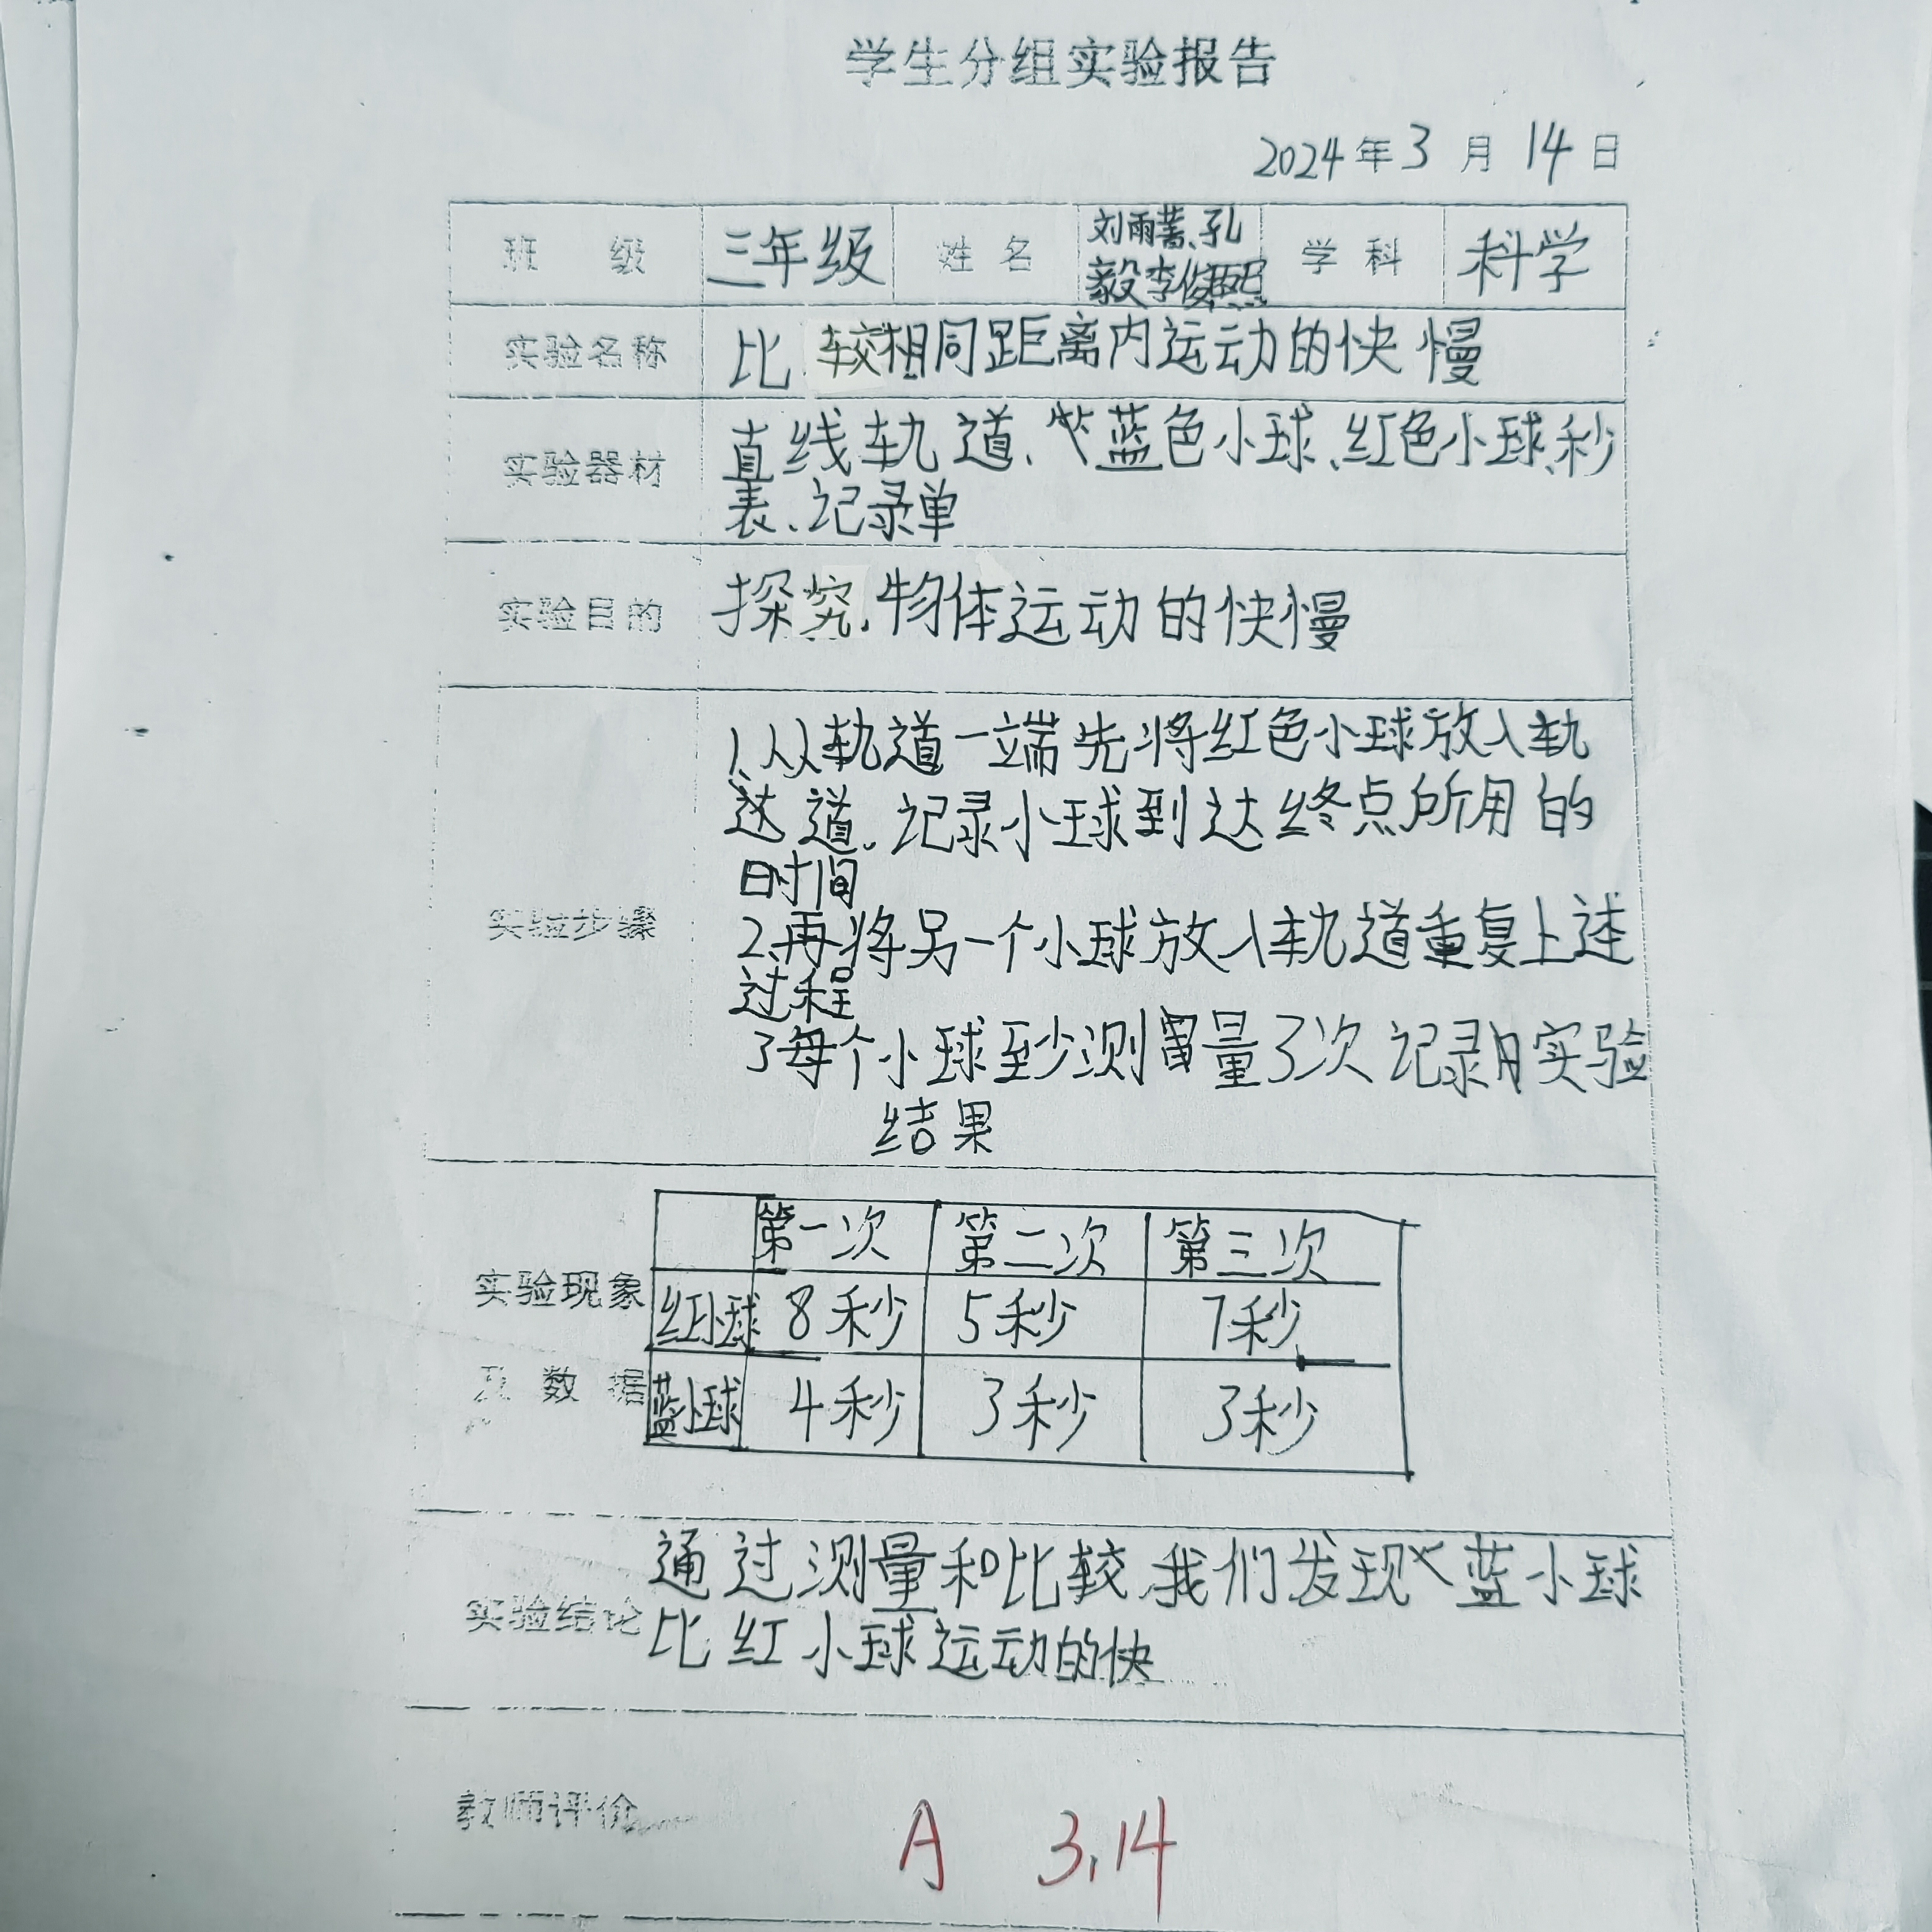 学生分组实验报告
2024年3月14日
班 级 三年级 姓名 刘雨蓍、孔毅李俊熙 学科 科学
实验名称 比较相同距离内运动的快慢
实验器材 直线轨道、蓝色小球、红色小球、秒
表、记录单
实验目的 探究物体运动的快慢
1.从轨道一端先将红色小球放入轨
道、记录小球到达终点所用的
时间
实验步骤
2.再将另一个小球放入轨道重复上述
过程
3每个小球至少测量3次记录实验
结果
实验现象及数据
第一次 第二次 第三次
红小球 8秒 5秒 7秒
蓝小球 4秒 3秒 3秒
实验结论
通过测量和比较,我们发现蓝小球
比红小球运动的快
教师评价
A 3.14